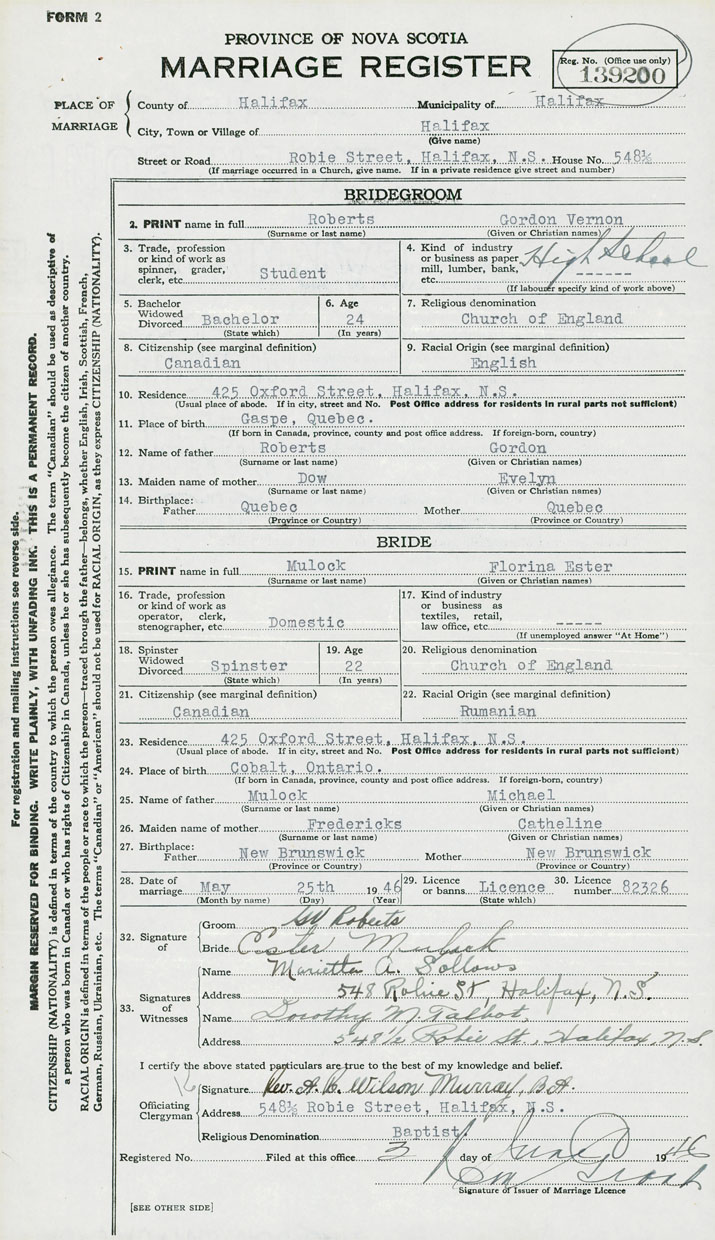 FORM 2
PROVINCE OF NOVA SCOTIA
MARRIAGE REGISTER
Reg. No. (Office use only)
139200
PLACE OF MARRIAGE
County of Halifax Municipality of Halifax
City, Town or Village of Halifax
(Give name)
Street or Road Robie Street, Halifax, N.S. House No. 548½
(If marriage occurred in a Church, give name. If in a private residence give street and number)
BRIDEGROOM
2. PRINT name in full Roberts Gordon Vernon
(Surname or last name) (Given or Christian names)
3. Trade, profession
or kind of work as
spinner, grader,
clerk, etc. Student
4. Kind of industry
or business as paper
mill, lumber, bank,
etc. High School ------
(If labourer specify kind of work above)
5. Bachelor
Widowed
Divorced Bachelor
(State which)
6. Age
24
(In years)
7. Religious denomination
Church of England
8. Citizenship (see marginal definition)
Canadian
9. Racial Origin (see marginal definition)
English
10. Residence 425 Oxford Street, Halifax, N.S.
(Usual place of abode. If in city, street and No. Post Office address for residents in rural parts not sufficient)
11. Place of birth Gaspe, Quebec.
(If born in Canada, province, county and post office address. If foreign-born, country)
12. Name of father Roberts Gordon
(Surname or last name) (Given or Christian names)
13. Maiden name of mother Dow Evelyn
(Surname or last name) (Given or Christian names)
14. Birthplace:
Father Quebec Mother Quebec
(Province or Country) (Province or Country)
BRIDE
15. PRINT name in full Mulock Florina Ester
(Surname or last name) (Given or Christian names)
16. Trade, profession
or kind of work as
operator, clerk,
stenographer, etc. Domestic
17. Kind of industry
or business as
textiles, retail,
law office, etc. -----
(If unemployed answer "At Home")
18. Spinster
Widowed
Divorced Spinster
(State which)
19. Age
22
(In years)
20. Religious denomination
Church of England
21. Citizenship (see marginal definition)
Canadian
22. Racial Origin (see marginal definition)
Rumanian
23. Residence 425 Oxford Street, Halifax, N.S.
(Usual place of abode. If in city, street and No. Post Office address for residents in rural parts not sufficient)
24. Place of birth Cobalt, Ontario.
(If born in Canada, province, county and post office address. If foreign-born, country)
25. Name of father Mulock Michael
(Surname or last name) (Given or Christian names)
26. Maiden name of mother Fredericks Catheline
(Surname or last name) (Given or Christian names)
27. Birthplace:
Father New Brunswick Mother New Brunswick
(Province or Country) (Province or Country)
28. Date of
marriage May 25th 1946
(Month by name) (Day) (Year)
29. Licence
or banns Licence
(State which)
30. Licence
number 82326
32. Signature of
Groom GV Roberts
Bride Ester Mulock
33. Signatures of Witnesses
Name Marietta A. Sollows
Address 548 Robie St, Halifax, N.S.
Name Dorothy M. Talbot
Address 548½ Robie St., Halifax, N.S.
I certify the above stated particulars are true to the best of my knowledge and belief.
Officiating Clergyman
Signature Rev. A. B. Wilson Murray, B.A.
Address 548½ Robie Street, Halifax, N.S.
Religious Denomination Baptist.
Registered No. Filed at this office 3 day of June 1946
Signature of Issuer of Marriage Licence
[SEE OTHER SIDE]
For registration and mailing instructions see reverse side.
MARGIN RESERVED FOR BINDING. WRITE PLAINLY, WITH UNFADING INK. THIS IS A PERMANENT RECORD.
CITIZENSHIP (NATIONALITY) is defined in terms of the country to which the person owes allegiance. The term "Canadian" should be used as descriptive of
a person who was born in Canada or who has rights of Citizenship in Canada, unless he or she has subsequently become the citizen of another country.
RACIAL ORIGIN is defined in terms of the people or race to which the person—traced through the father—belongs, whether English, Irish, Scottish, French,
German, Russian, Ukrainian, etc. The terms "Canadian" or "American" should not be used for RACIAL ORIGIN, as they express CITIZENSHIP (NATIONALITY).